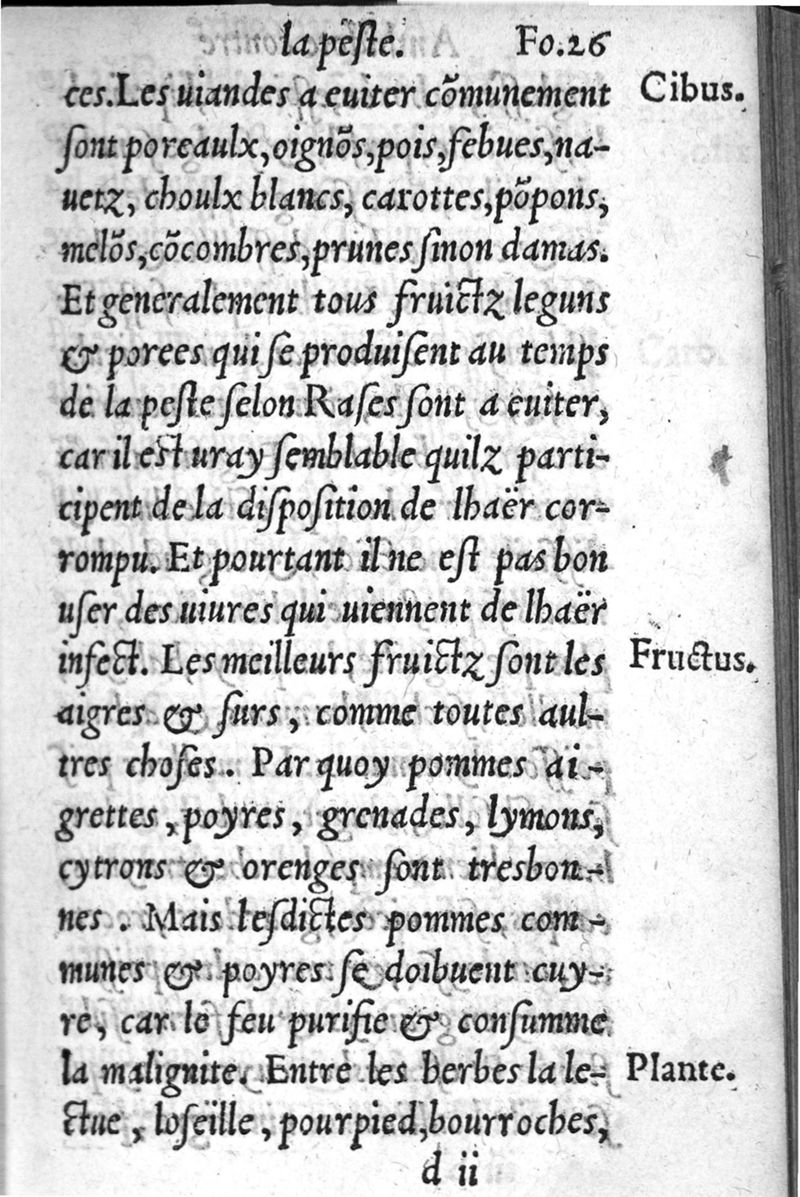 la peste. Fo.26
ces.Les uiandes a euiter cõmunement Cibus.
ſont poreaulx,oignõs,pois,febues,na-
uetz, choulx blancs, carottes,põpons,
melõs,cõcombres,prunes ſinon damas.
Et generalement tous fruictz leguns
& porees qui ſe produiſent au temps
de la peſte ſelon Raſes ſont a euiter,
car il eſt uray ſemblable quilz parti-
cipent de la diſpoſition de lhaër cor-
rompu. Et pourtant il ne eſt pas bon
uſer des uiures qui uiennent de lhaër
infect. Les meilleurs fruictz ſont les Fructus.
aigres & ſurs, comme toutes aul-
tres choſes. Par quoy pommes ai-
grettes, poyres, grenades, lymons,
cytrons & orenges ſont tresbon-
nes. Mais leſdictes pommes com-
munes & poyres ſe doibuent cuy-
re, car le feu purifie & conſumme
la malignite. Entre les herbes la le- Plante.
ctue, loſeille, pourpied,bourroches,
d ii